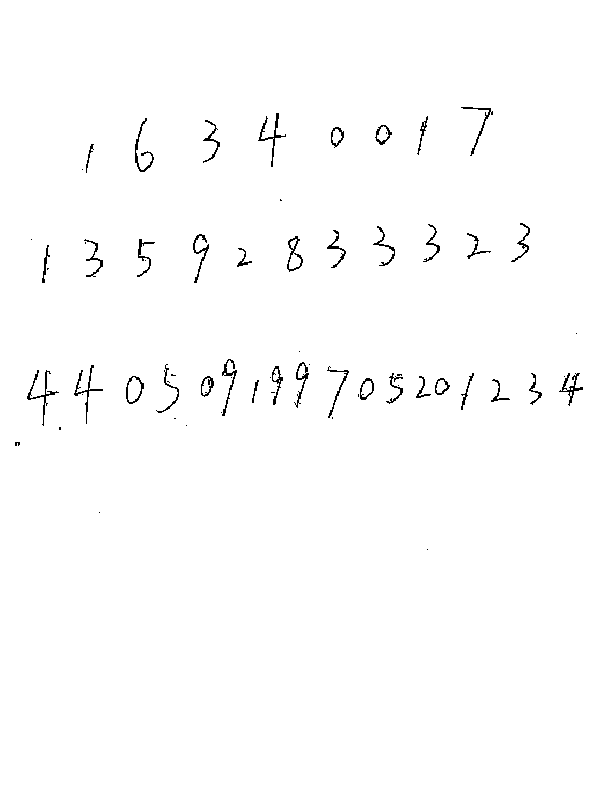 16340017
13592833323
440509199705201234